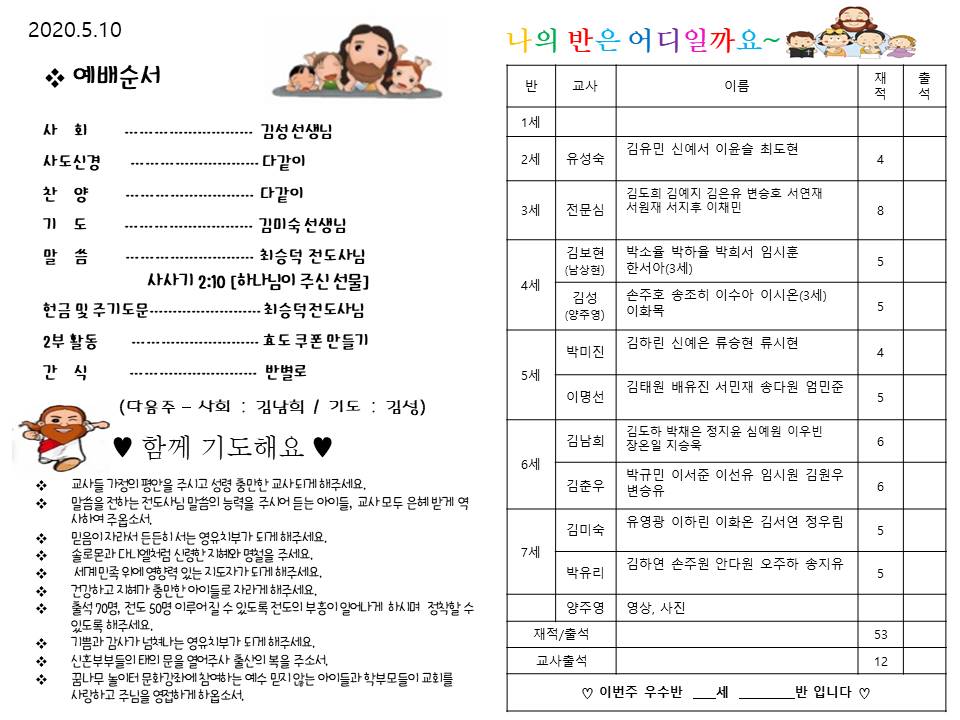 2020.5.10
❖ 예배순서
사 회 --------------------------- 김성 선생님
사도신경 --------------------------- 다같이
찬 양 --------------------------- 다같이
기 도 --------------------------- 김미숙 선생님
말 씀 --------------------------- 최승덕 전도사님
사사기 2:10 [하나님이 주신 선물]
헌금 및 주기도문----------------------- 최승덕전도사님
2부 활동 --------------------------- 효도 쿠폰 만들기
간 식 --------------------------- 반별로
(다음주 – 사회 : 김남희 / 기도 : 김성)
♥ 함께 기도해요 ♥
❖ 교사들 가정의 평안을 주시고 성령 충만한 교사 되게 해주세요.
❖ 말씀을 전하는 전도사님 말씀의 능력을 주시어 듣는 아이들, 교사 모두 은혜 받게 역
사하여 주옵소서.
❖ 믿음이 자라서 든든히 서는 영유치부가 되게 해주세요.
❖ 솔로몬과 다니엘처럼 신령한 지혜와 명철을 주세요.
❖ 세계 민족 위에 영향력 있는 지도자가 되게 해주세요.
❖ 건강하고 지혜가 충만한 아이들로 자라게 해주세요.
❖ 출석 70명, 전도 50명 이루어 질 수 있도록 전도의 부흥이 일어나게 하시며 정착할 수
있도록 해주세요.
❖ 기쁨과 감사가 넘쳐나는 영유치부가 되게 해주세요.
❖ 신혼부부들의 태의 문을 열어주사 출산의 복을 주소서.
❖ 꿈나무 놀이터 문화강좌에 참여하는 예수 믿지 않는 아이들과 학부모들이 교회를
사랑하고 주님을 영접하게 하옵소서.
나의 반은 어디일까요~
반 교사 이름 재적 출석
1세
2세 유성숙 김유민 신예서 이윤슬 최도현 4
3세 전문심 김도희 김예지 김은유 변승호 서연재
서원재 서지후 이채민 8
4세 김보현 (남상현) 박소율 박하율 박희서 임시훈
한서아(3세) 5
김성 (양주영) 손주호 송조히 이수아 이시온(3세)
이화목 5
5세 박미진 김하린 신예은 류승현 류시현 4
이명선 김태원 배유진 서민재 송다원 엄민준 5
6세 김남희 김도하 박채은 정지윤 심예원 이우빈
장온일 지승욱 6
김춘우 박규민 이서준 이선유 임시원 김원우
변승유 6
7세 김미숙 유영광 이하린 이화온 김서연 정우림 5
박유리 김하연 손주원 안다원 오주하 송지유 5
양주영 영상, 사진
재적/출석 53
교사출석 12
♡ 이번주 우수반 ___세 ________반 입니다 ♡